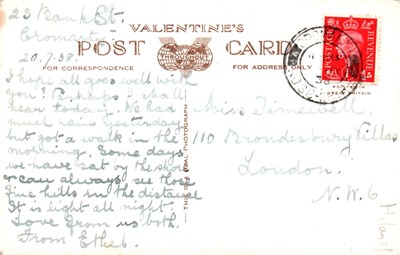 23 Bank St.
Cromarty.
20.7.38.
VALENTINE'S
POST CARD
FOR CORRESPONDENCE
FOR ADDRESS ONLY
I hope all goes well with
you? Perhaps I shall
hear today. We had
much rain yesterday
but got a walk in the
morning. Some days
we have sat by the shore
can always see those
fine hills in the distance
It is light all night.
Love from us both.
From Ethel.
THIS IS A REAL PHOTOGRAPH
POSTAGE
REVENUE
Miss Tinewell
110 Brondesbury Villas
London.
N.W.6